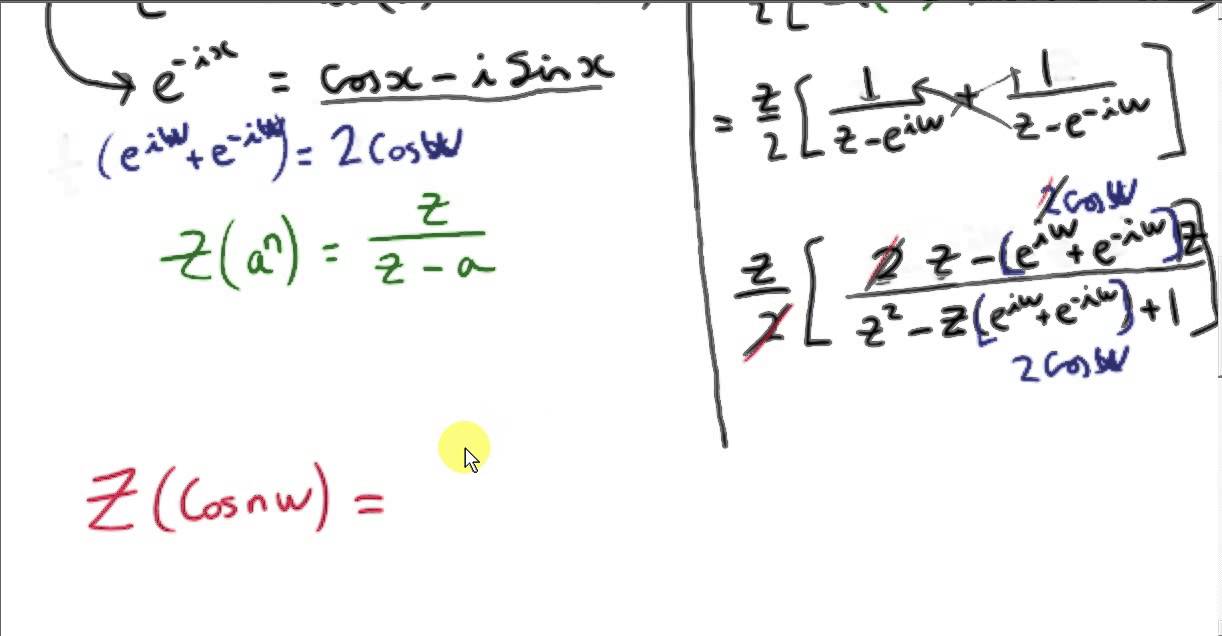 e^{-ix} = cosx - i Sinx
(e^{iw} + e^{-iw}) = 2Cosw
Z(a^n) = z / (z - a)
Z(Cosnw) =
= z/2 [ 1/(z - e^{iw}) + 1/(z - e^{-iw}) ]
2cosw
z/2 [ (2 z - (e^{iw} + e^{-iw}) z) / (z^2 - z(e^{iw} + e^{-iw}) + 1) ]
2Cosw